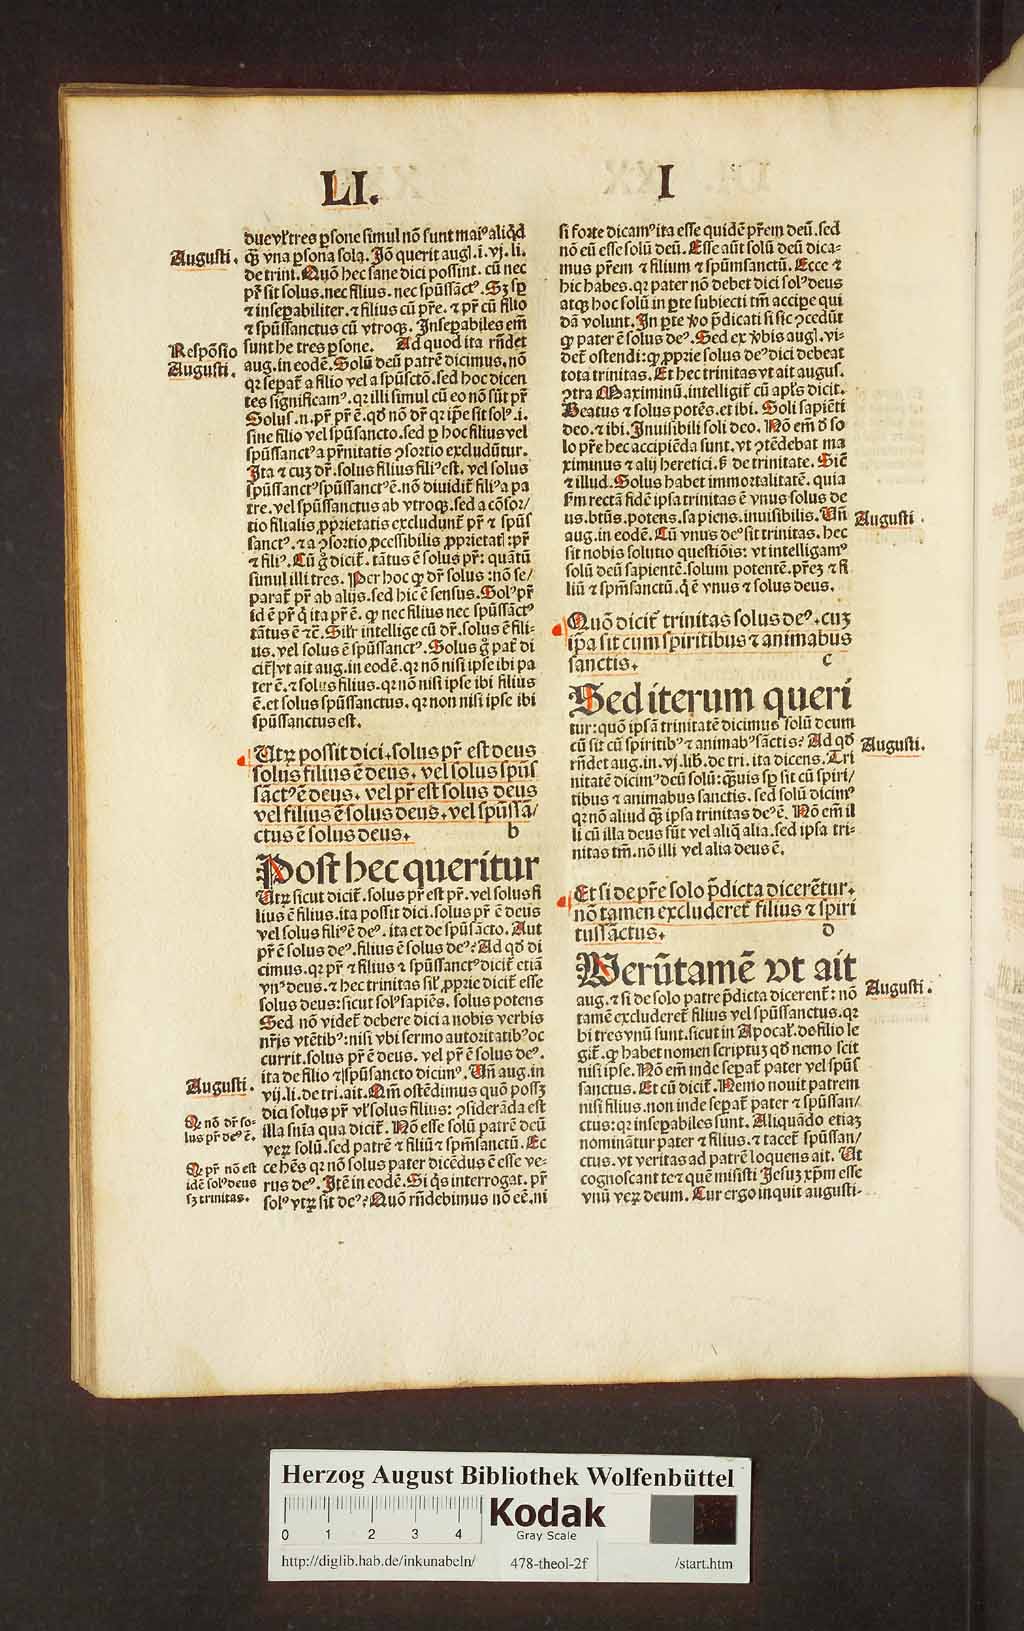 LI. I
Augusti.
Respōsio
Augusti.
Augusti.
Q nō dr̄ so-
lus pr̄ deꝰ ē.
Q pr̄ nō est
idē solꝰ deus
sꝫ trinitas.
due vl̓ tres ꝑsone simul nō sunt maiꝰ aliqd̄
qꝫ̄ vna ꝑsona sola. Iō querit augꝰ. ī. vj. li.
de trini. Quō hec sane dici possint. cū nec
pr̄ sit solus. nec filius. nec spūssāctꝰ. Sꝫ sꝑ
⁊ inseꝑabiliter. ⁊ filius cū pr̄e. ⁊ pr̄ cū filio
⁊ spūssanctus cū vtroqꝫ. Inseꝑabiles em̄
sunt he tres ꝑsone. Ad quod ita rn̄det
aug. in eodē. Solū deū patrē dicimus. nō
qꝛ seꝑat̄ a filio vel a spūsctō. sed hoc dicen
tes significamꝰ. qꝛ illi simul cū eo nō sūt pr̄
Solus. n. pr̄ pr̄ ē. qd̄ nō dr̄ qꝛ ip̄e sit solꝰ. i.
sine filio vel spūsancto. sed ꝑ hoc filius vel
spūssanctꝰ a pr̄nitatis ꝯsortio excludūtur.
Ita ⁊ cuꝫ dr̄. solus filius filiꝰ est. vel solus
spūssanctꝰ spūssanctꝰ ē. nō diuidit̄ filiꝰ a pa
tre. vel spūssanctus ab vtroqꝫ. sed a cōsor/
tio filialis ꝓprietatis excludunt̄ pr̄ ⁊ spūs
sanctꝰ. ⁊ a ꝯsortio ꝓcessibilis ꝓprietatꝭ: pr̄
⁊ filiꝰ. Cū g̊ dicit̄. tātus ē solus pr̄: quātū
simul illi tres. Per hoc ꝙ dr̄ solus: nō se/
parat̄ pr̄ ab alijs. sed hic ē sensus. Solꝰ pr̄
id ē pr̄ q̇ ita pr̄ ē. ꝙ nec filius nec spūssāctꝰ
tātus ē ⁊c̄. Sil̓r intellige cū dr̄. solus ē fili-
us. vel solus ē spūssanctꝰ. Solus g̊ pat̄ di
cit̄ vt ait aug. in eodē. qꝛ nō nisi ipse ibi pa
ter ē. ⁊ solus filius. qꝛ nō nisi ipse ibi filius
ē. et solus spūssanctus. qꝛ non nisi ipse ibi
spūssanctus est.
Utꝝ possit dici. solus pr̄ est deus
solus filius ē deus. vel solus spūs
sāctꝰ ē deus. vel pr̄ est solus deus
vel filius ē solus deus. vel spūssā/
ctus ē solus deus. b
Post hec queritur
Utꝝ sicut dicit̄. solus pr̄ est pr̄. vel solus fi
lius ē filius. ita possit dici. solus pr̄ ē deus
vel solus filiꝰ ē deꝰ. ita et de spūsācto. Aut
pr̄ ē solus deꝰ. filius ē solus deꝰ? Ad qd̄ di
cimus. qꝛ pr̄ ⁊ filius ⁊ spūssanctꝰ dicit̄ etiā
vnꝰ deus. ⁊ hec trinitas sil̓ ꝓprie dicit̄ esse
solus deus: sicut solꝰ sapiēs. solus potens
Sed nō videt̄ debere dici a nobis verbis
nr̄is vtētibꝰ: nisi vbi sermo autoritatibꝰ oc
currit. solus pr̄ ē deus. vel pr̄ ē solus deꝰ.
ita de filio ⁊ spūsancto dicimꝰ. Un̄ aug. in
vij. li. de tri. ait. Qm̄ ostēdimus quō possꝫ
dici solus pr̄ vl̓ solus filius: ꝯsiderāda est
illa sn̄ia qua dicit̄. Nō esse solū patrē deū
veꝝ solū. sed patrē ⁊ filiū ⁊ spm̄sanctū. Ec
ce hēs qꝛ nō solus pater dicēdus ē esse ve-
rus deꝰ. Itē in eodē. Si qͥs interrogat. pr̄
solꝰ vtꝝ sit deꝰ? Quō rn̄debimus nō eē. ni
si forte dicamꝰ ita esse quidē pr̄em deū. sed
nō eū esse solū deū. Esse aūt solū deū dica-
mus pr̄em ⁊ filium ⁊ spūmsanctū. Ecce ⁊
hic habes. qꝛ pater nō debet dici solꝰ deus
atqꝫ hoc solū in ꝑte subiecti tm̄ accipe qui
dā volunt. In ꝑte ꝟo p̄dicati si sic ꝯcedūt
ꝙ pater ē solus deꝰ. Sed ex ꝟbis augꝰ. vi-
det̄ ostendi: ꝙ ꝓprie solus deꝰ dici debeat
tota trinitas. Et hec trinitas vt ait augus.
ꝯtra Maximinū. intelligit̄ cū apl̓s dicit.
Beatus ⁊ solus potēs. et ibi. Soli sapiēti
deo. ⁊ ibi. Inuisibili soli deo. Nō em̄ d̄ so
lo pr̄e hec accipiēda sunt. vt ꝯtēdebat ma
ximinus ⁊ alij heretici. sꝫ de trinitate. Sic̄
⁊ illud. Solus habet immortalitatē. quia
sm̄ rectā fidē ipsa trinitas ē vnus solus de
us. btūs. potens. sapiens. inuisibilis. Un̄
aug. in eodē. Cū vnus deꝰ sit trinitas. hec
sit nobis solutio questiōis: vt intelligamꝰ
solū deū sapientē. solum potentē. pr̄eꝫ ⁊ fi
liū ⁊ spm̄sanctū. q̇ ē vnus ⁊ solus deus.
Quō dicit̄ trinitas solus deꝰ. cuꝫ
ip̄a sit cum spiritibus ⁊ animabus
sanctis. c
Sed iterum queri
tur: quō ipsā trinitatē dicimus solū deum
cū sit cū spiritibꝰ ⁊ animabꝰ sāctis? Ad qd̄
rn̄det aug. in. vj. lib. de tri. ita dicens. Tri
nitatē dicimꝰ deū solū: qꝫuis sꝑ sit cū spiri/
tibus ⁊ animabus sanctis. sed solū dicimꝰ
qꝛ nō aliud qꝫ̄ ipsa trinitas deꝰ ē. Nō em̄ il
li cū illa deus sūt vel aliq̄ alia. sed ipsa tri-
nitas tm̄. nō illi vel alia deus ē.
Et si de pr̄e solo p̄dicta dicerētur.
nō tamen excluderet̄ filius ⁊ spiri
tussāctus. d
Uerūtamē vt ait
aug. ⁊ si de solo patre p̄dicta dicerent̄: nō
tamē excluderet̄ filius vel spūssanctus. qꝛ
hi tres vnū sunt. sicut in Apocal̓. de filio le
git̄. ꝙ habet nomen scriptuꝫ qd̄ nemo scit
nisi ipse. Nō em̄ inde seꝑat̄ pater vel spūs
sanctus. Et cū dicit̄. Nemo nouit patrem
nisi filius. non inde seꝑat̄ pater ⁊ spūssan/
ctus: qꝛ inseꝑabiles sunt. Aliquādo etiaꝫ
nominātur pater ⁊ filius. ⁊ tacet̄ spūssan/
ctus. vt veritas ad patrē loquens ait. Ut
cognoscant te ⁊ quē misisti Iesuꝫ xp̄m esse
vnū veꝝ deum. Cur ergo inquit augusti-
Augusti.
Augusti.
Augusti.
Herzog August Bibliothek Wolfenbüttel
0 1 2 3 4
Kodak
Gray Scale
http://diglib.hab.de/inkunabeln/ 478-theol-2f /start.htm